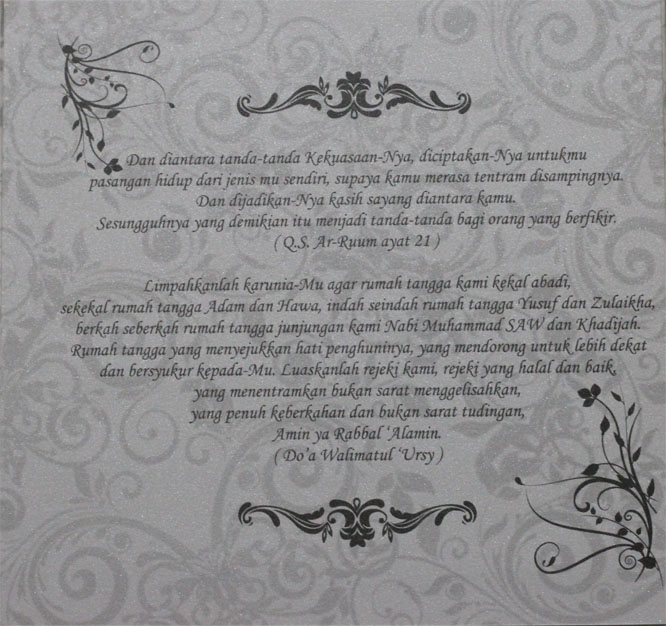 Dan diantara tanda-tanda Kekuasaan-Nya, diciptakan-Nya untukmu
pasangan hidup dari jenis mu sendiri, supaya kamu merasa tentram disampingnya.
Dan dijadikan-Nya kasih sayang diantara kamu.
Sesungguhnya yang demikian itu menjadi tanda-tanda bagi orang yang berfikir.
( Q.S. Ar-Ruum ayat 21 )
Limpahkanlah karunia-Mu agar rumah tangga kami kekal abadi,
sekekal rumah tangga Adam dan Hawa, indah seindah rumah tangga Yusuf dan Zulaikha,
berkah seberkah rumah tangga junjungan kami Nabi Muhammad SAW dan Khadijah.
Rumah tangga yang menyejukkan hati penghuninya, yang mendorong untuk lebih dekat
dan bersyukur kepada-Mu. Luaskanlah rejeki kami, rejeki yang halal dan baik,
yang menentramkan bukan sarat menggelisahkan,
yang penuh keberkahan dan bukan sarat tudingan,
Amin ya Rabbal ‘Alamin.
( Do’a Walimatul ‘Ursy )